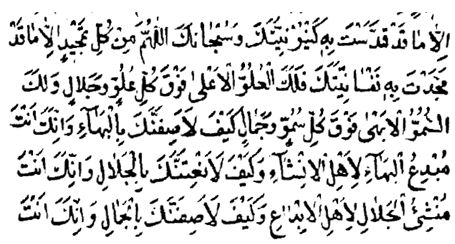 الا ما قد قدست به كينونيتك وسبحانك اللهم من كل تمجيد الا ما قد
مجدت به نفسانيتك فلك العلو الاعلى فوق كل علو وجلال ولك
السمو الابهى فوق كل سمو وجمال كيف لاصفنك بالبهاء وانك انت
مبدع البهاء لاهل الانشاء وكيف لانعتنك بالجلال وانك انت
منشئ الجلال لاهل الابداع وكيف لاصفنك بالجمال وانك انت